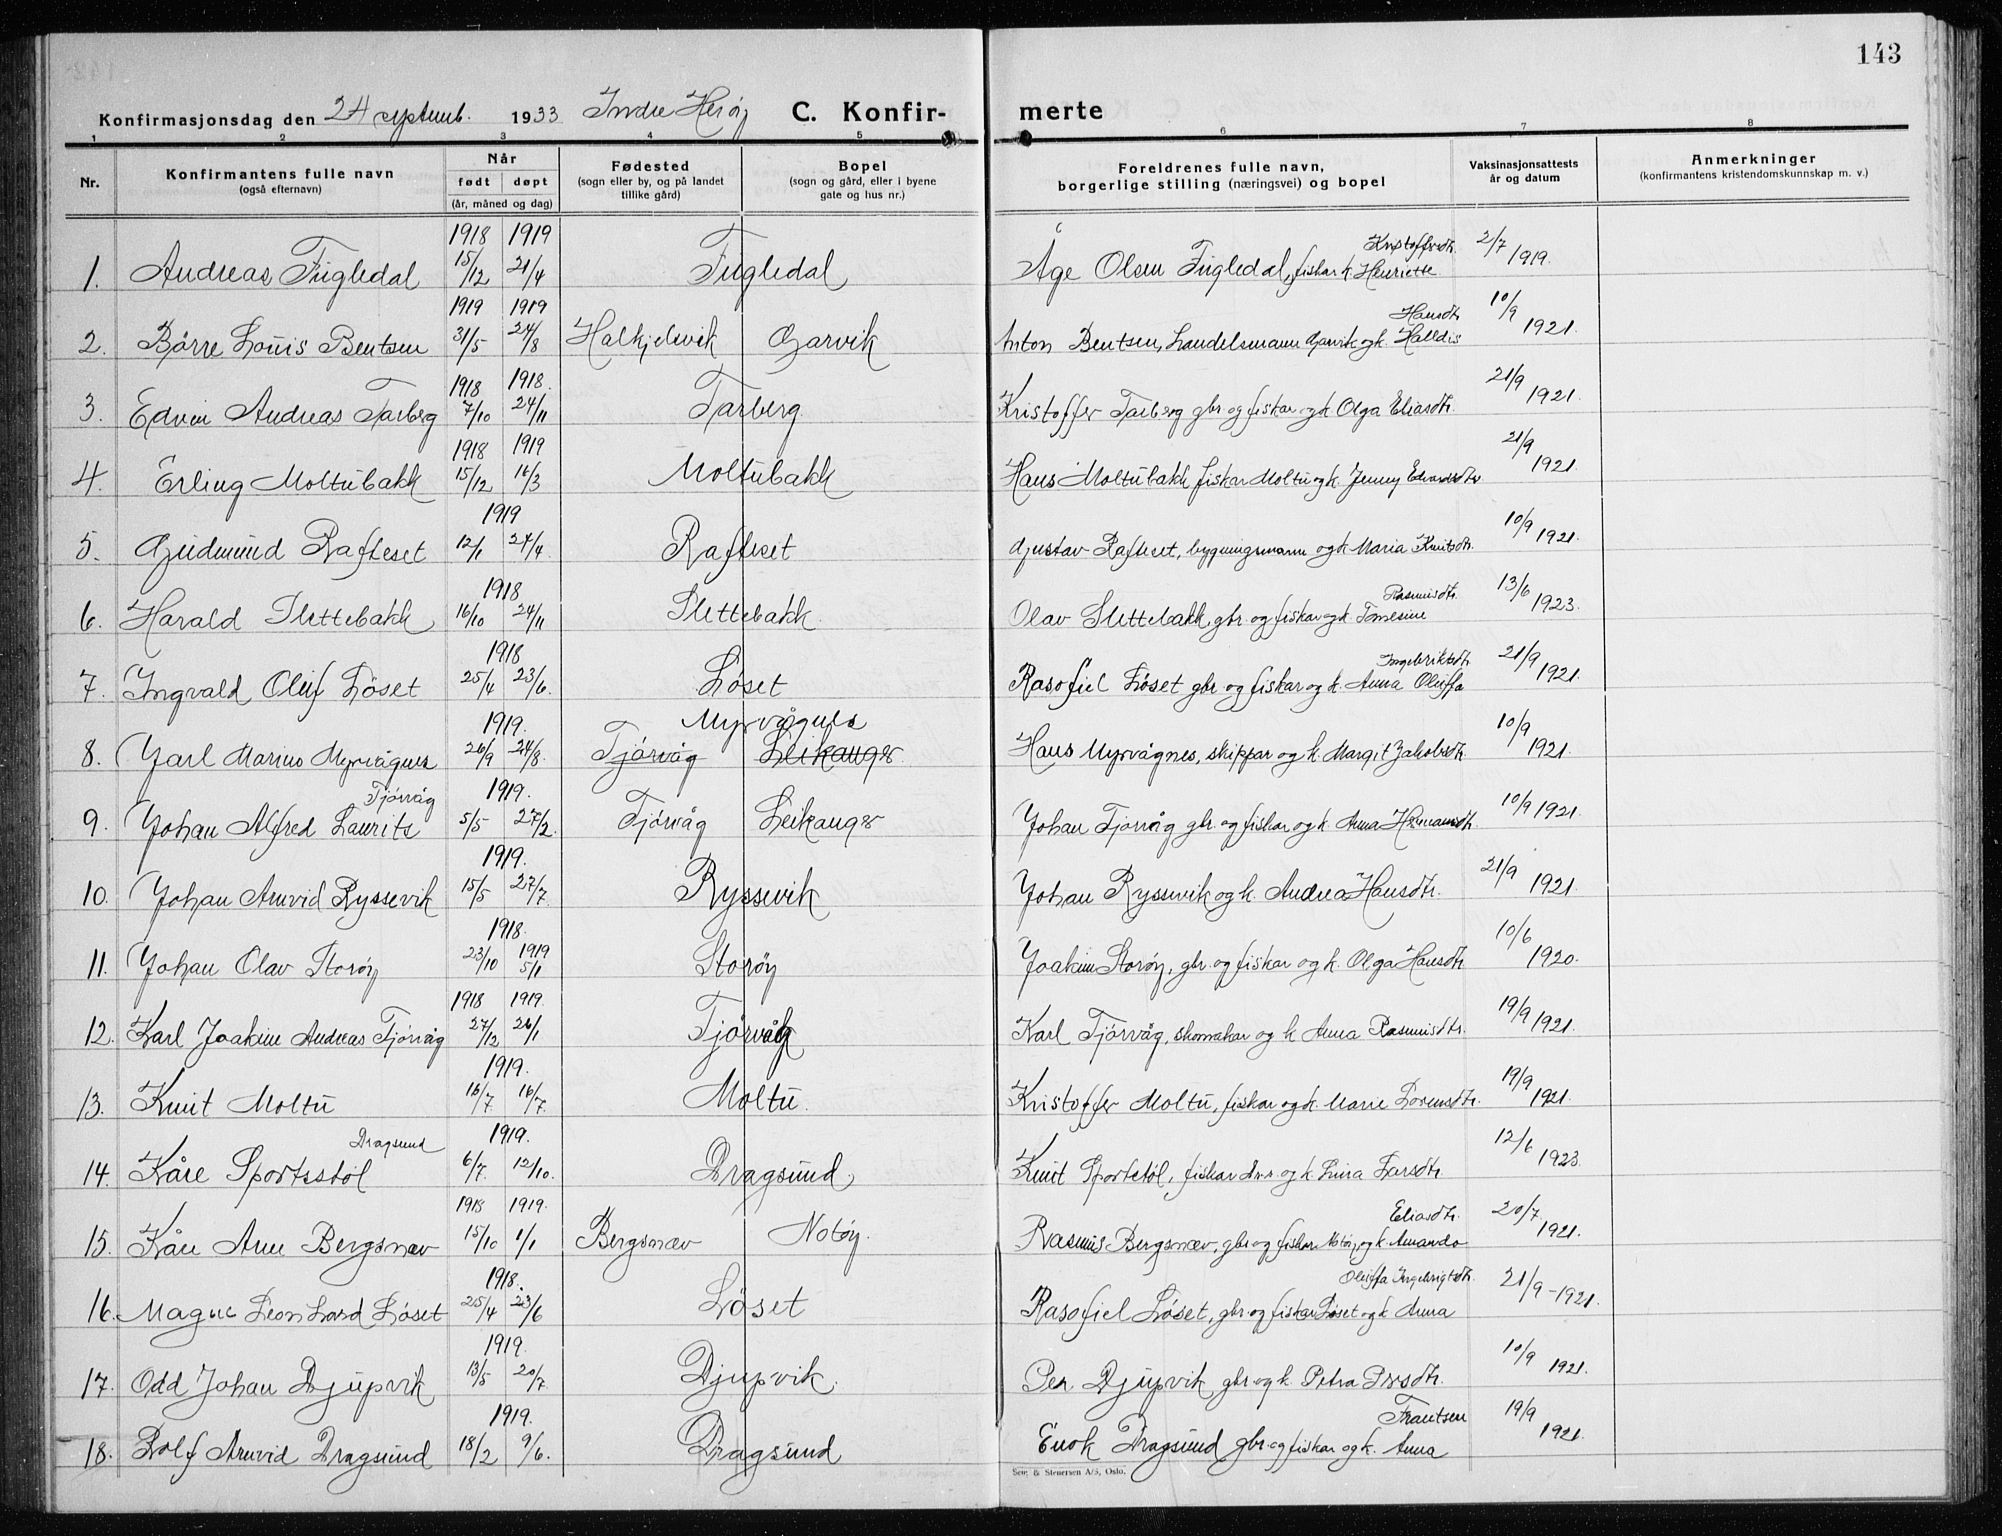 143
Konfirmasjonsdag den 24 septemb. 1933 Indre Herøy C. Konfir- merte
1 2 3 4 5 6 7 8
Nr. Konfirmantens fulle navn (også efternavn) Når født døpt (år, måned og dag) Fødested (sogn eller by, og på landet tillike gård) Bopel (sogn og gård, eller i byene gate og hus nr.) Foreldrenes fulle navn, borgerlige stilling (næringsvei) og bopel Vaksinasjonsattests år og datum Anmerkninger (konfirmantens kristendomskunnskap m. v.)
1918 1919 Kristoffersdtr.
1. Andreas Fugledal 15/12 21/4 Fugledal Åge Olsen Fugledal, fiskar k Henriette 2/7 1919.
1919 1919 Hansdtr
2. Børre Louis Bentsen 31/5 24/8 Halkjelsvik Garvik Anton Bentsen, handelsmann Garvik og k. Halldis 10/9 1921.
1918 1918.
3. Edvin Andreas Tarberg 7/10 24/11 Tarberg Kristoffer Tarberg gbr og fiskar og k Olga Eliasdtr. 21/9 1921.
1918 1919
4. Erling Moltubakk 15/12 16/3 Moltubakk Hans Moltubakk fiskar Moltu og k. Jenny Edvardsdtr 21/9 1921.
1919
5. Gudmund Rafteset 12/1 27/4 Rafteset Gustav Rafteset, bygningsmann og k Maria Knutsdtr. 10/9 1921.
1918 Rasmusdtr.
6. Harald Slettebakk 16/10 24/11 Slettebakk. Olav Slettebakk, gbr og fiskar og k Tomesine 13/6 1923.
1918 Ingebriktsdtr
7. Ingvald Oluf Løset 25/4 23/6. Løset Rasofiel Løset gbr og fiskar og k. Anna Oluffa 21/9 1921.
1919. Myrvågnes
8. Jarl Marius Myrvågnes 26/9 24/8. Tjørvåg Leikanger. Hans Myrvågnes, skippar og k. Margit Jakobsdtr. 10/9 1921.
Tjørvåg 1919.
9. Johan Alfred Laurits 5/5 27/2. Tjørvåg Leikanger Johan Tjørvåg gbr. og fiskar og k. Anna Hermansdtr. 10/9 1921.
1919.
10. Johan Arnvid Ryssevik 15/5 27/7. Ryssevik Johan Ryssevik og k. Andrea Hansdtr. 21/9 1921.
1918.
11. Johan Olav Storøy 23/10 1919 5/1 Storøy Joakim Storøy, gbr. og fiskar og k. Olga Hansdtr 10/6 1920.
1918 1919.
12. Karl Joakim Andreas Tjørvåg 27/12 26/1 Tjørvåg Karl Tjørvåg, skomakar og k Anna Rasmusdtr. 19/9 1921.
1919.
13. Knut Moltu 16/7. 16/7. Moltu. Kristoffer Moltu, fiskar og k. Marie Lorensdtr. 19/9 1921.
Dragsund 1919.
14. Kåre Sportsstøl 6/7. 12/10. Dragsund Knut Sportstøl, fiskar Drs. og k. Lina Larsdtr 12/6 1923.
1918 1919. Eliasdtr.
15. Kåre Arne Bergsnæv 15/10 1/1 Bergsnæv Notøy. Rasmus Bergsnæv, gbr og fiskar Notøy og k. Amanda 20/7 1921.
1918. Oluffa Ingebrigtsdtr.
16. Magne Leonhard Løset 25/4 23/6 Løset Rasofiel Løset, gbr. og fiskar Løset og k Anna 21/9-1921.
1919.
17. Odd Johan Djupvik 13/5 20/7. Djupvik. Per Djupvik, gbr og k. Petra Persdtr. 10/9 1921.
1919. Frantsen
18. Rolf Arnvid Dragsund 18/2 9/6. Dragsund Enok Dragsund gbr. og fiskar og k. Anna 19/9 1921.
Sem & Stenersen A/S, Oslo.